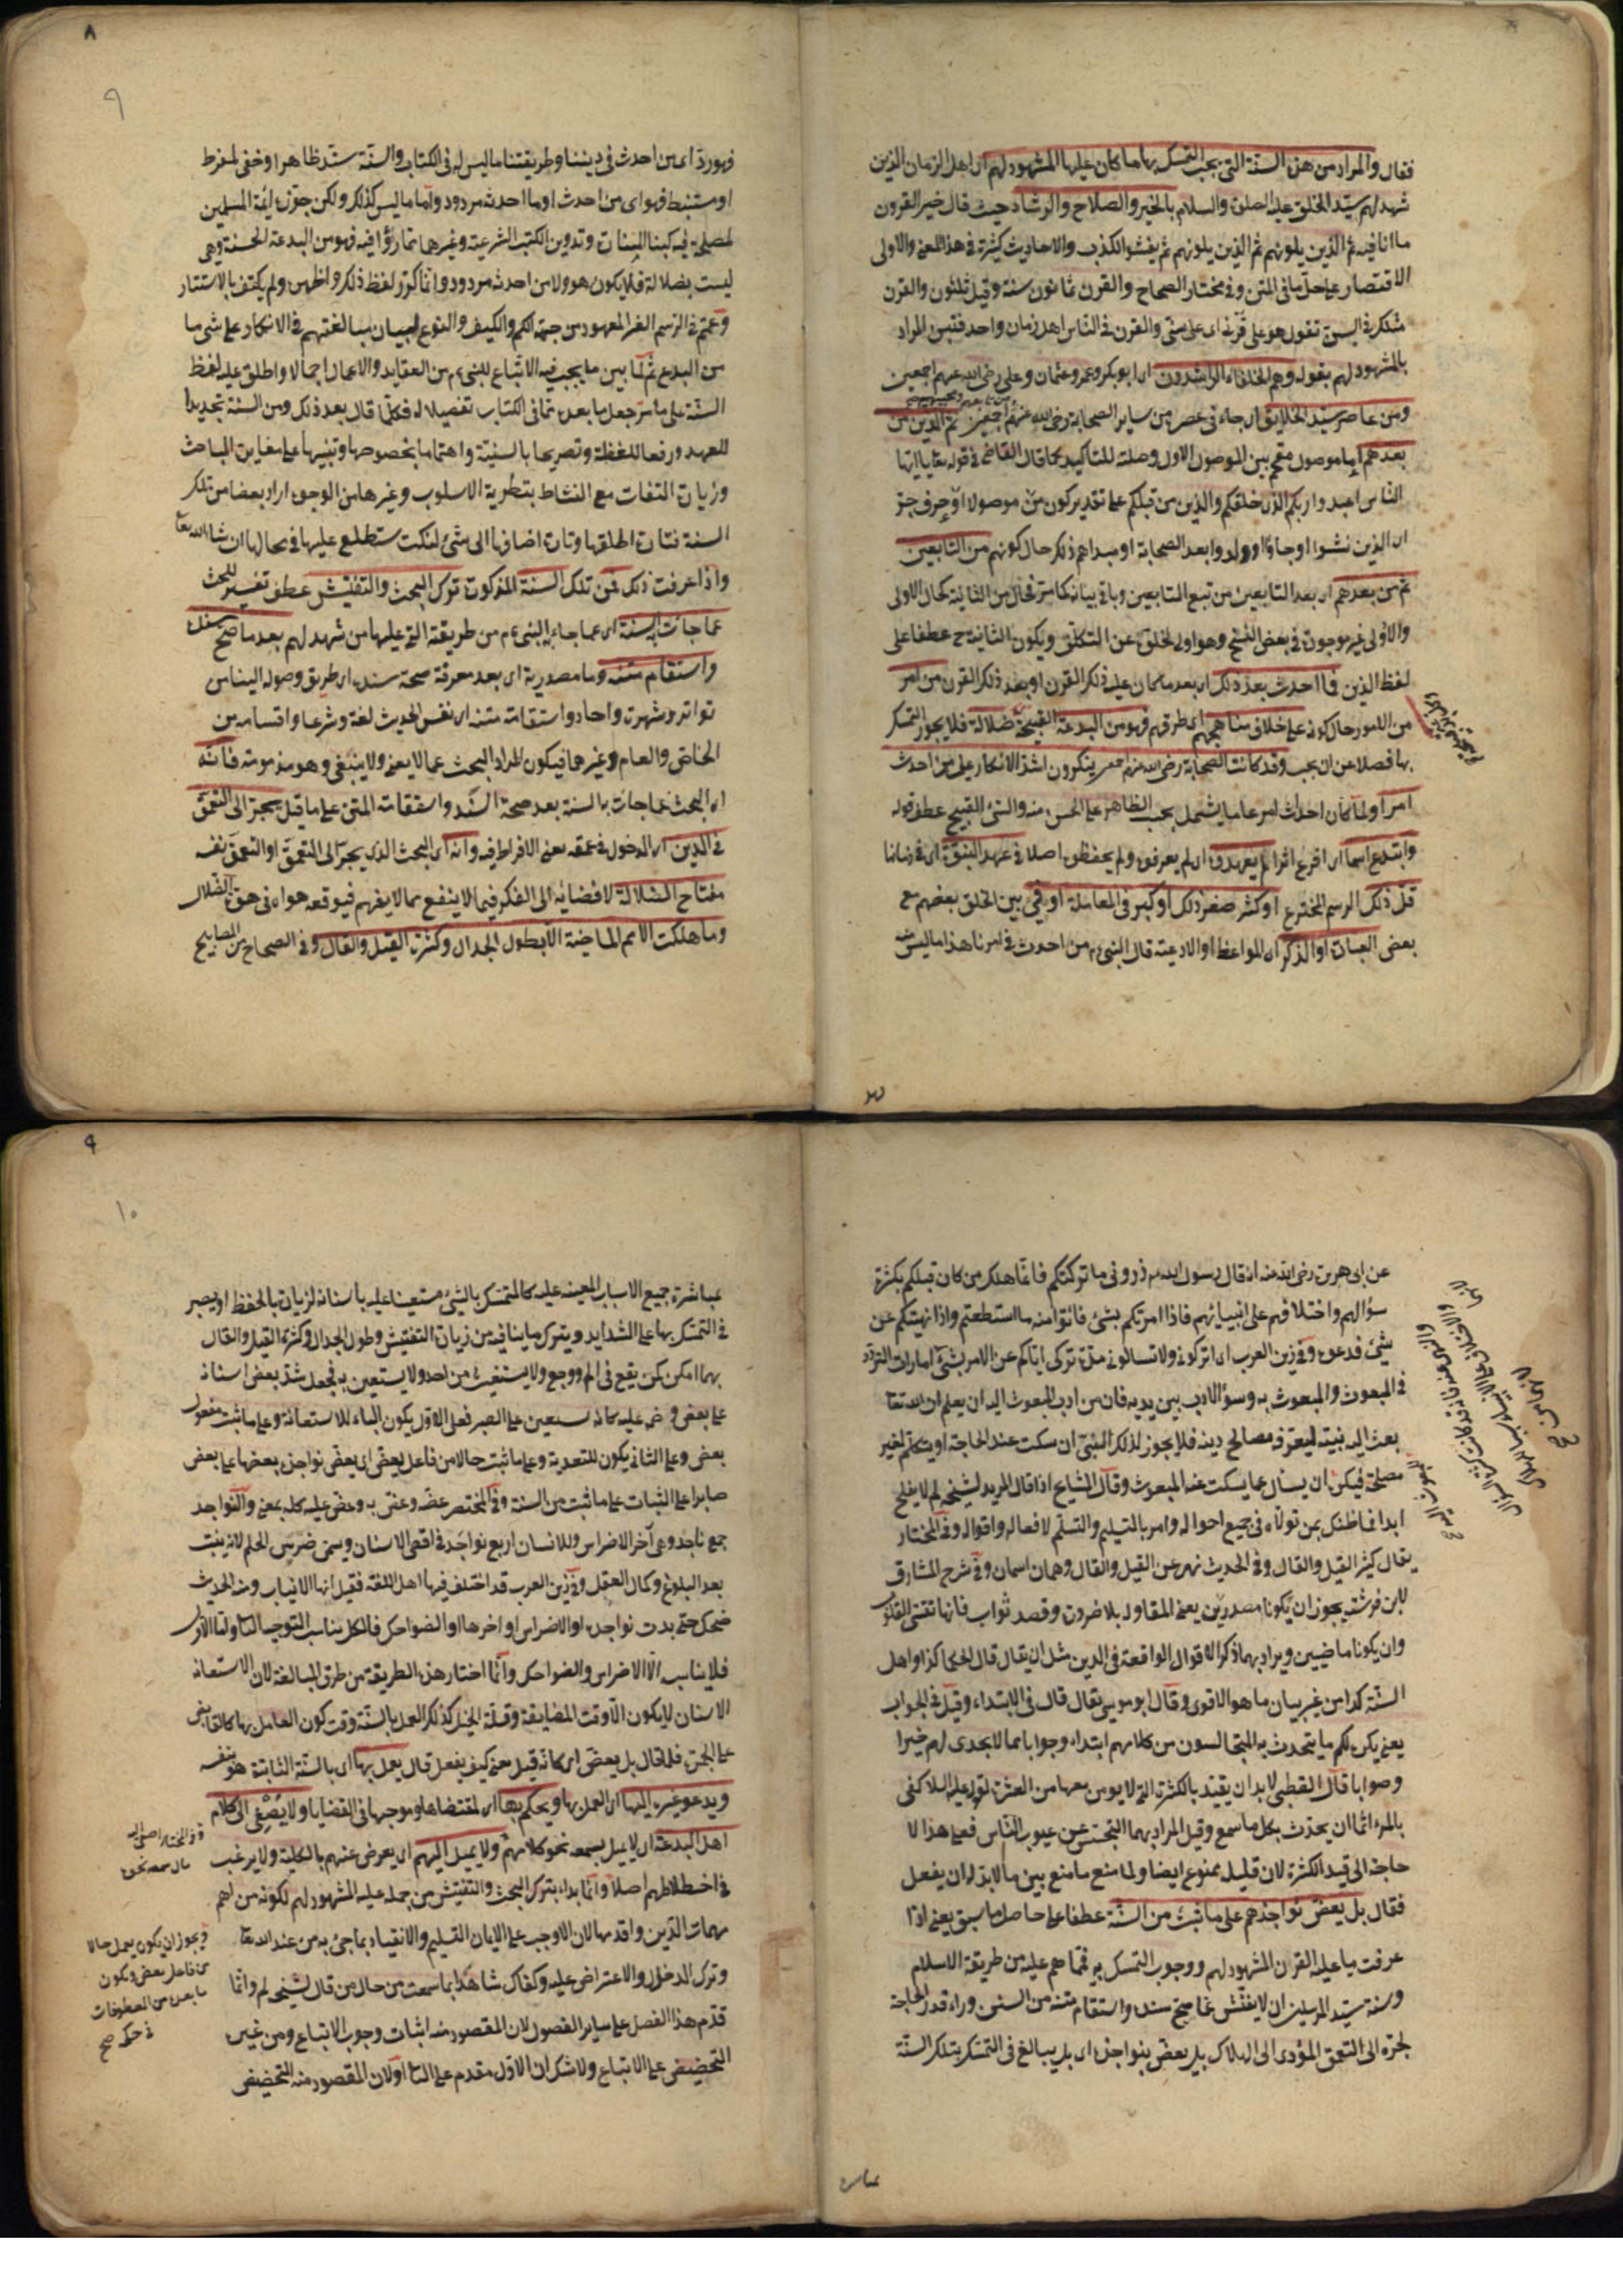 ٨
٩
فقال والمراد من هذه السنة التي يجب التمسك بها ما كان عليها المشهود لهم اى اهل الزمان الذين
شهد لهم سيد الخلق عليه الصلوة والسلام بالخير والصلاح والرشاد حيث قال خير القرون
ما انا فيه ثم الذين يلونهم ثم الذين يلونهم ثم يفشوا الكذب والاحاديث كثيرة في هذا المعنى والاولى
الاقتصار على حل ما في المتن وفي مختار الصحاح والقرن ثمانون سنة وقيل ثلثون والقرن
مثلك في السن تقول هو على قرني اى على سنى والقرن في الناس اهل زمان واحد فتبين المراد
بالمشهود لهم بقوله وهم الخلفاء الراشدون اى ابو بكر وعمر وعثمان وعلى رضى الله عنهم اجمعين
ومن عاصر سيد الخلايق اى جاء في عصره من ساير الصحابة رضى الله عنهم اجمعين ثم الذين من
بعدهم اما موصول مقحم بين الموصول الاول وصلته للتاكيد كما قال القاضى في قوله تعا يا ايها
الناس اعبدوا ربكم الذى خلقكم والذين من قبلكم على تقدير كون من موصولا او حرف جر
اى الذين نشوا او جاؤا او ولدوا بعد الصحابة او مبداهم ذلك حال كونهم من التابعين
ثم من بعدهم اى بعد التابعين من تبع التابعين وباقي بيانه كما مر فحال من الثانية كحال الاولى
والاولى غير موجودة في بعض النسخ وهو اولى لخلوه عن التكلف ويكون الثانية ح عطفا على
لفظ الذين فما احدث بعد ذلك اى بعد ما كان عليه ذلك القرن او بعد ذلك القرن من امر
من الامور حال كونه على خلاف مناهجهم اى طرقهم فهو من البدعة القبيحة ضلالة فلا يجوز التمسك
بها فضلا عن ان يجب وقد كانت الصحابة رضى الله عنهم ينكرون اشد الانكار على من احدث
امرا ولما كان احداث امر عاما يشمل بحسب الظاهر على الحسن منه والشئ القبيح عطف قوله
وابتدع رسما اى اخرع اثرا لم يعهدوه اى لم يعرفوه ولم يحفظوه اصلا في عهد النبوة اى في زمانا
قل ذلك الرسم المخترع او كثر صغر ذلك او كبر في المعاملة او في بين الخلق بعضهم مع
بعض العبادة او الذكر اى المواعظ او الادعية قال النبى م من احدث في امرنا هذا ما ليس منه
فهو رد اى من احدث في ديننا وطريقتنا ما ليس له في الكتاب والسنة سند ظاهر او خفى ملفوظ
او مستنبط فهو اى من احدث او ما احدثه مردود واما ما ليس كذلك ولكن جوزه ائمة المسلمين
لمصلحة فيه كبناء المنارات وتدوين الكتب الشرعية وغيرها مما رؤا فيه فهو من البدعة الحسنة وهى
ليست بضلالة فلا يكون هو ولا من احدثه مردودا وانما كرر لفظ ذلك واظهره ولم يكتف بالاستتار
وعمم في الرسم الغير المعهود من جهة الكم والكيف والنوع لبيان مبالغتهم في الانكار على شئ ما
من البدع ثم لما بين ما يجب فيه الاتباع للنبى م من العقايد والاعمال اجمالا واطلق عليه لفظ
السنة على ما مر جعل ما بعده مما في الكتاب تفصيلا له فكلما قال بعد ذلك ومن السنة تجديدا
للعهد ورفعا للغفلة وتصريحا بالسنية واهتماما بخصوصها وتنبيها على مغايرة المباحث
وزيادة التفات مع النشاط بتطرية الاسلوب وغيرها من الوجوه اراد بعضا من تلك
السنة فتارة اطلقها وتارة اضافها الى شئ لنكت ستطلع عليها في محالها ان شاء الله تعا
واذا عرفت ذلك فمن تلك السنة المذكورة ترك البحث والتفتيش عطف تفسير للبحث
عما جاءت به السنة اى عما جاء به النبى م من طريقته التى عليها من شهد لهم بعد ما صح سنده
واستقام متنه وما مصدرية اى بعد معرفة صحة سنده اى طريق وصوله الينا من
تواتر وشهرة واحاد واستقامة متنه اى نفس الحديث لغة وشرعا واقسامه من
الخاص والعام وغيرهما فيكون المراد البحث عما لا يعنى ولا ينبغى وهو مذمومة فانه
اى البحث عما جاءت به السنة بعد صحة السند واستقامة المتن على ما قيل يجر الى التعمق
في الدين اى الدخول في عمقه يعنى الافراط فيه وانه اى البحث الذى يجر الى التعمق او التعمق نفسه
مفتاح الضلالة لافضائه الى الفكر فيما لا ينفع بما لا يفهم فيوقعه هواه في هوة الضلال
وما هلكت الامم الماضية الا بطول الجدال وكثرة القيل والقال وفي الصحاح من المصابيح
٩
١٠
عن ابى هريرة رضى الله عنه انه قال رسول الله م ذرونى ما تركتكم فانما هلك من كان قبلكم بكثرة
سؤالهم واختلافهم على انبيائهم فاذا امرتكم بشئ فائتوا منه ما استطعتم واذا نهيتكم عن
شئ فدعوه وفي زين العرب اى اتركونى ولا تسالونى مدة تركى اياكم عن الامر بشئ امارات التردد
في المبعوث والمبعوث به وسوء الادب بين يديه فان من ادب المبعوث اليه ان يعلم ان الله تعا
بعث اليه نبيه ليعرفه مصالح دينه فلا يجوز لذلك النبى ان سكت عند الحاجة او يتكلم لغير
مصلحة فيكره ان يسأل عما يسكت عنه المبعوث وقال المشايخ اذا قال المريد لشيخه لم لا يفلح
ابدا فما ظنك بمن تولاه في جميع احواله وامر بالتسليم والتسلم لافعاله واقواله وفي المختار
يقال كثر القيل والقال وفي الحديث نهى عن القيل والقال وهما اسمان وفي شرح المشارق
لابن فرشته يجوز ان يكونا مصدرين يعنى المقاولة بلا ضرورة وقصد ثواب فانها تقسى القلوب
وان يكونا ماضيين ويراد بهما ذكر الاقوال الواقعة في الدين مثل ان يقال قال الحكما كذا واهل
السنة كذا من غير بيان ما هو الاقوى وقال ابو موسى يقال قال في الابتداء وقيل في الجواب
يعنى يكره لكم ما يتحدث به المتجالسون من كلامهم ابتداء وجوابا مما لا يجدى لهم خيرا
وصوابا قال القطبى لا بد ان يقيد بالكثرة التى لا يؤمن معها من العثرة لقوله عليه السلام كفى
بالمرء اثما ان يحدث بكل ما سمع وقيل المراد بهما التجسس عن عيوب الناس فعلى هذا لا
حاجة الى قيد الكثرة لان قليله ممنوع ايضا ولما منع ما منع بين ما لا بد له ان يفعل
فقال بل يعض نواجذهم على ما ثبت من السنة عطفا على حاصل ما سبق يعنى اذا
عرفت ما عليه القرن المشهود لهم ووجوب التمسك به فمما هم عليه من طريقة الاسلام
وسنة سيد المرسلين ان لا يفتش عما صح سنده واستقام متنه من السنن وراء قدر الحاجة
لجره الى التعمق المؤدى الى الهلاك بل يعض بنواجذه اى بل يبالغ في التمسك بتلك السنة
بمباشرة جميع الاسباب المعينة عليه كالمتمسك بالشئ مستعينا عليه باسنانه لزيادة الحفظ او يصبر
في التمسك بها على الشدايد ويترك ما ينافيه من زيادة التفتيش وطول الجدال وكثرة القيل والقال
مهما امكن كمن يقع في الم ووجع ولا يستغيث من احد ولا يستعين به فجعل شد بعض اسنانه
على بعض وعض عليه كانه يستعين على الصبر فعلى الاول يكون الباء للاستعانة وعلى ما ثبت مفعول
يعض وعلى الثانى يكون للتعدية وعلى ما ثبت حالا من فاعل يعض اى يعض نواجذه بعضها على بعض
صابرا على الثبات على ما ثبت من السنة وفي المختصر عضه وعض به وعض عليه كله بمعنى والنواجذ
جمع ناجذ وهى آخر الاضراس وللانسان اربع نواجذ في اقصى الاسنان ويسمى ضرس الحلم لانه ينبت
بعد البلوغ وكمال العقل وفي زين العرب قد اختلف فيها اهل اللغة فقيل انها الانياب ومنه الحديث
ضحك حتى بدت نواجذه او الاضراس او اخرها او الضواحك فالكل يناسب التوجيه الثانى واما الاول
فلا يناسبه الا الاضراس والضواحك وانما اختار هذه الطريقة من طرق المبالغة لان الاستعانة
الاسنان لا يكون الا وقت المضايقة وقلة الحيل كذلك العمل بالسنة وقت كون العامل بها كالقابض
على الجمر فلما قال بل يعض اى كانه قيل يعنى كيف يفعل قال يعمل بها اى بالسنة الثابتة هو بنفسه
ويدعو غيره اليها اى العمل بها ويحكم بها اى لمقتضاها وموجبها في القضايا ولا يصغى الى كلام
اهل البدعة اى لا يميل بسمعه نحو كلامهم ولا يميل اليهم اى يعرض عنهم بالكلية ولا يرغب
في اختلاطهم اصلا وانما بداء بترك البحث والتفتيش من جملة عليه المشهود لهم لكونه من اهم
مهمات الدين واقدمها لان الاوجب على الايمان التسليم والانقياد بما جئ به من عند الله تعا
وترك الدخل والاعتراض عليه وكفاك شاهدا بما سمعت من حال من قال لشيخه لم وانما
قدم هذا الفصل على ساير الفصول لان المقصود منه اثبات وجوب الاتباع ومن غيره
التحضيض على الاتباع ولا شك ان الاول مقدم على الثانى او لان المقصود منه التحضيض
وفي المختار اصغى اليه
مال بسمعه نحوه
ويجوز ان يكون يعمل حالا
من فاعل يعض ويكون
ما بعده من المعطوفات
في حكمه صح